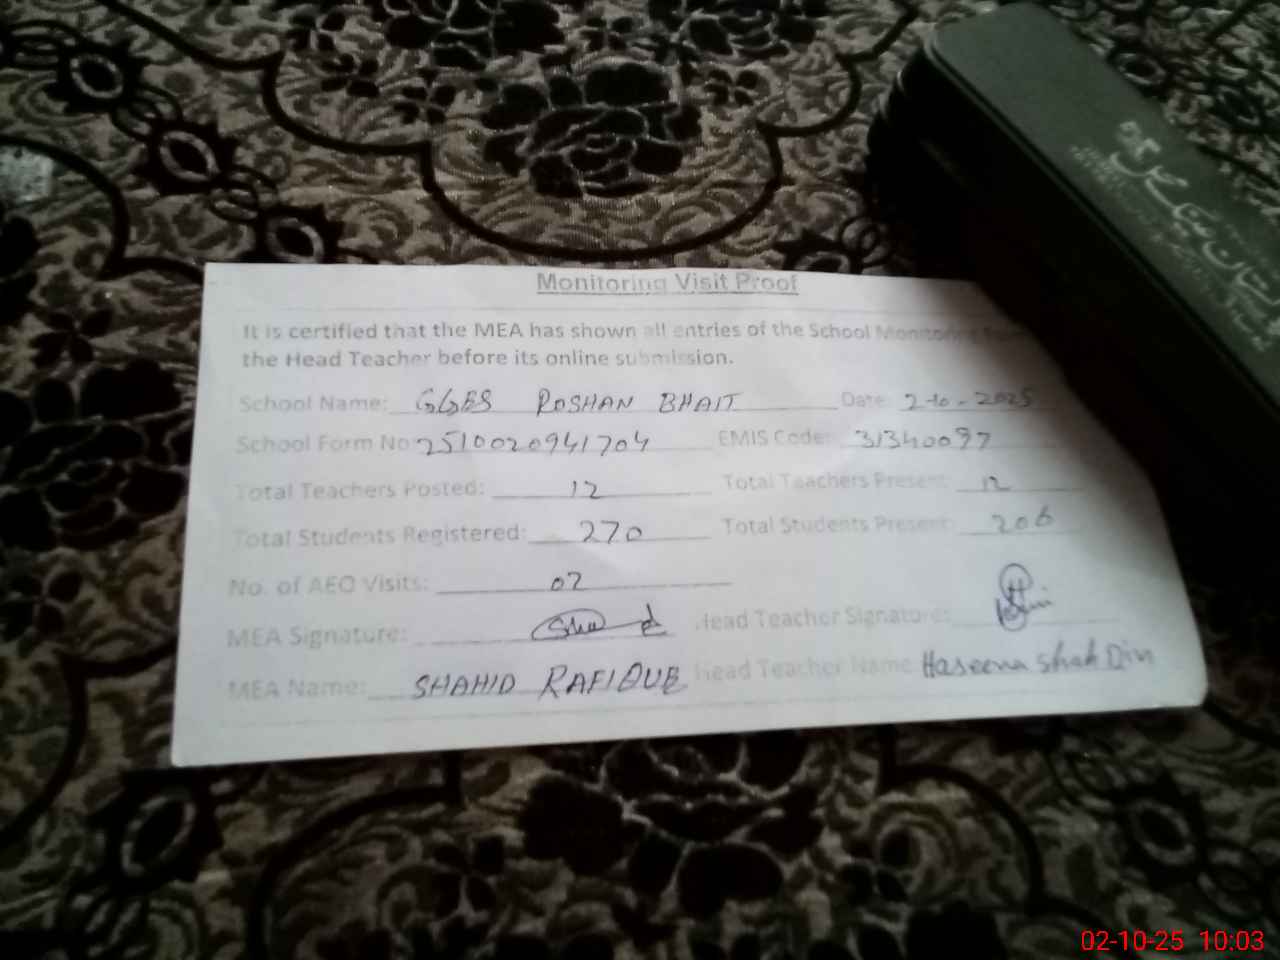 Monitoring Visit Proof
It is certified that the MEA has shown all entries of the School Monitoring
the Head Teacher before its online submission.
School Name: GGES ROSHAN BHAIT Date: 2-10-2025
School Form No: 2510020941704 EMIS Code: 31340097
Total Teachers Posted: 12 Total Teachers Present: 12
Total Students Registered: 270 Total Students Present: 206
No. of AEO Visits: 02
MEA Signature: Head Teacher Signature:
MEA Name: SHAHID RAFIQUE Head Teacher Name: Haseena Shah Din
02-10-25 10:03